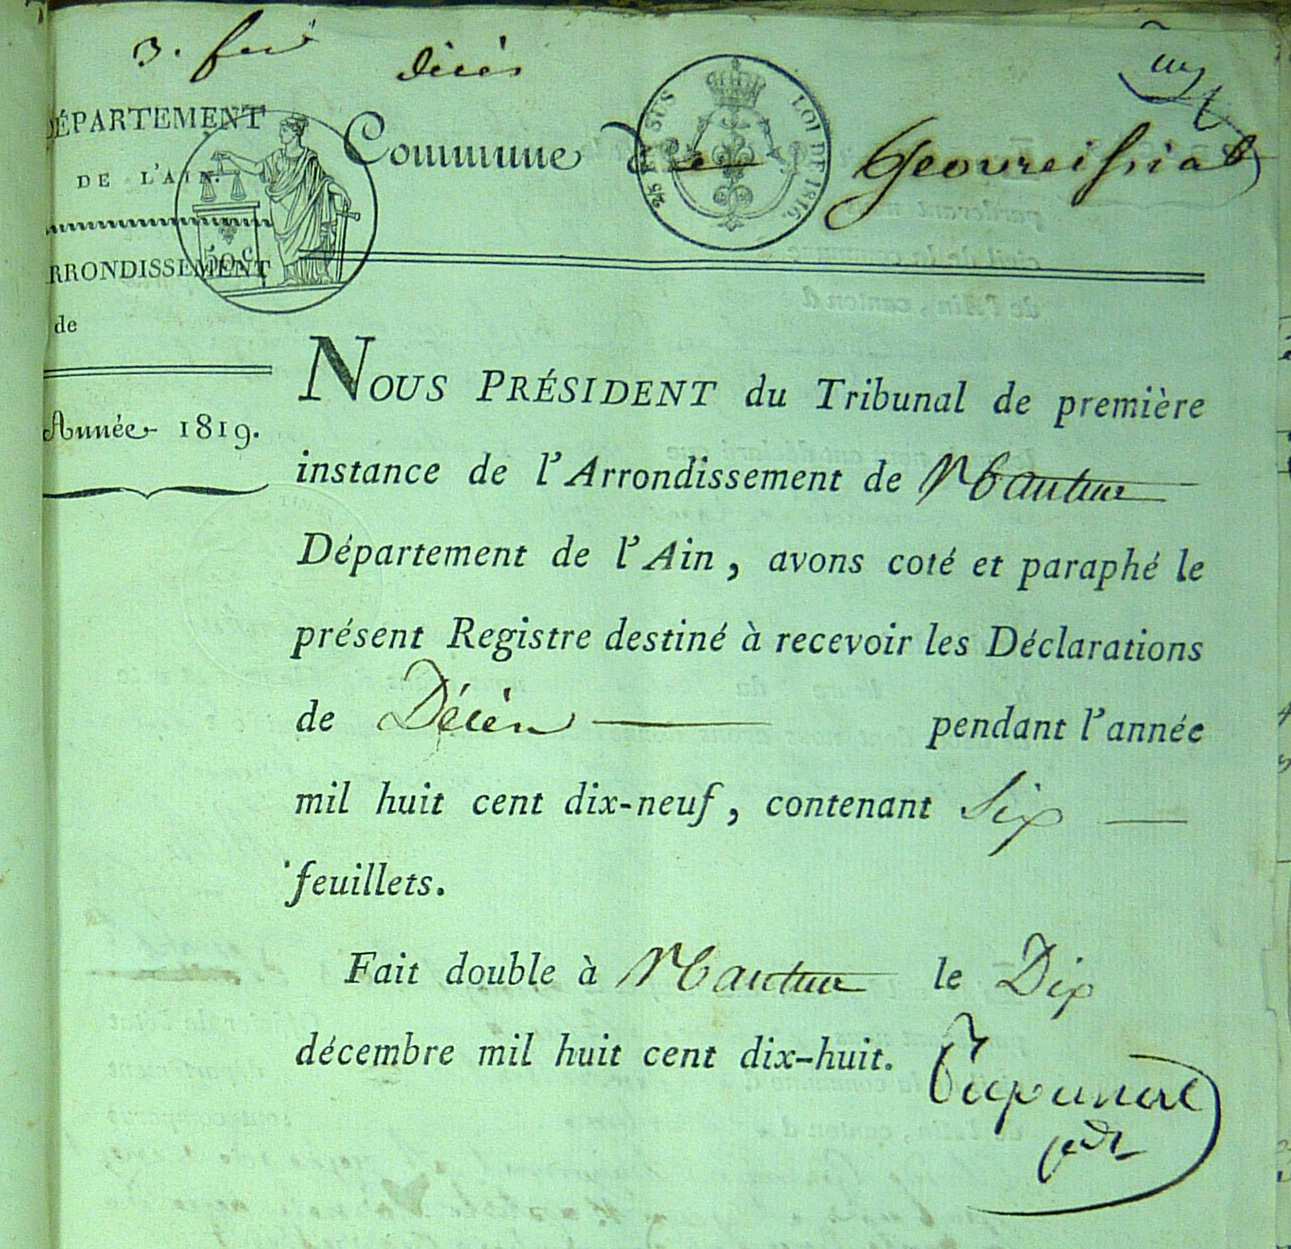 3. décès
DÉPARTEMENT
DE L'AIN.
Commune de Geovreissiat
25 EN SUS
LOI DE 1816.
50 c
ARRONDISSEMENT
de
Année 1819.
NOUS PRÉSIDENT du Tribunal de première
instance de l'Arrondissement de Nantua
Département de l'Ain, avons coté et paraphé le
présent Registre destiné à recevoir les Déclarations
de Décès pendant l'année
mil huit cent dix-neuf, contenant Six
feuillets.
Fait double à Nantua le Dix
décembre mil huit cent dix-huit.